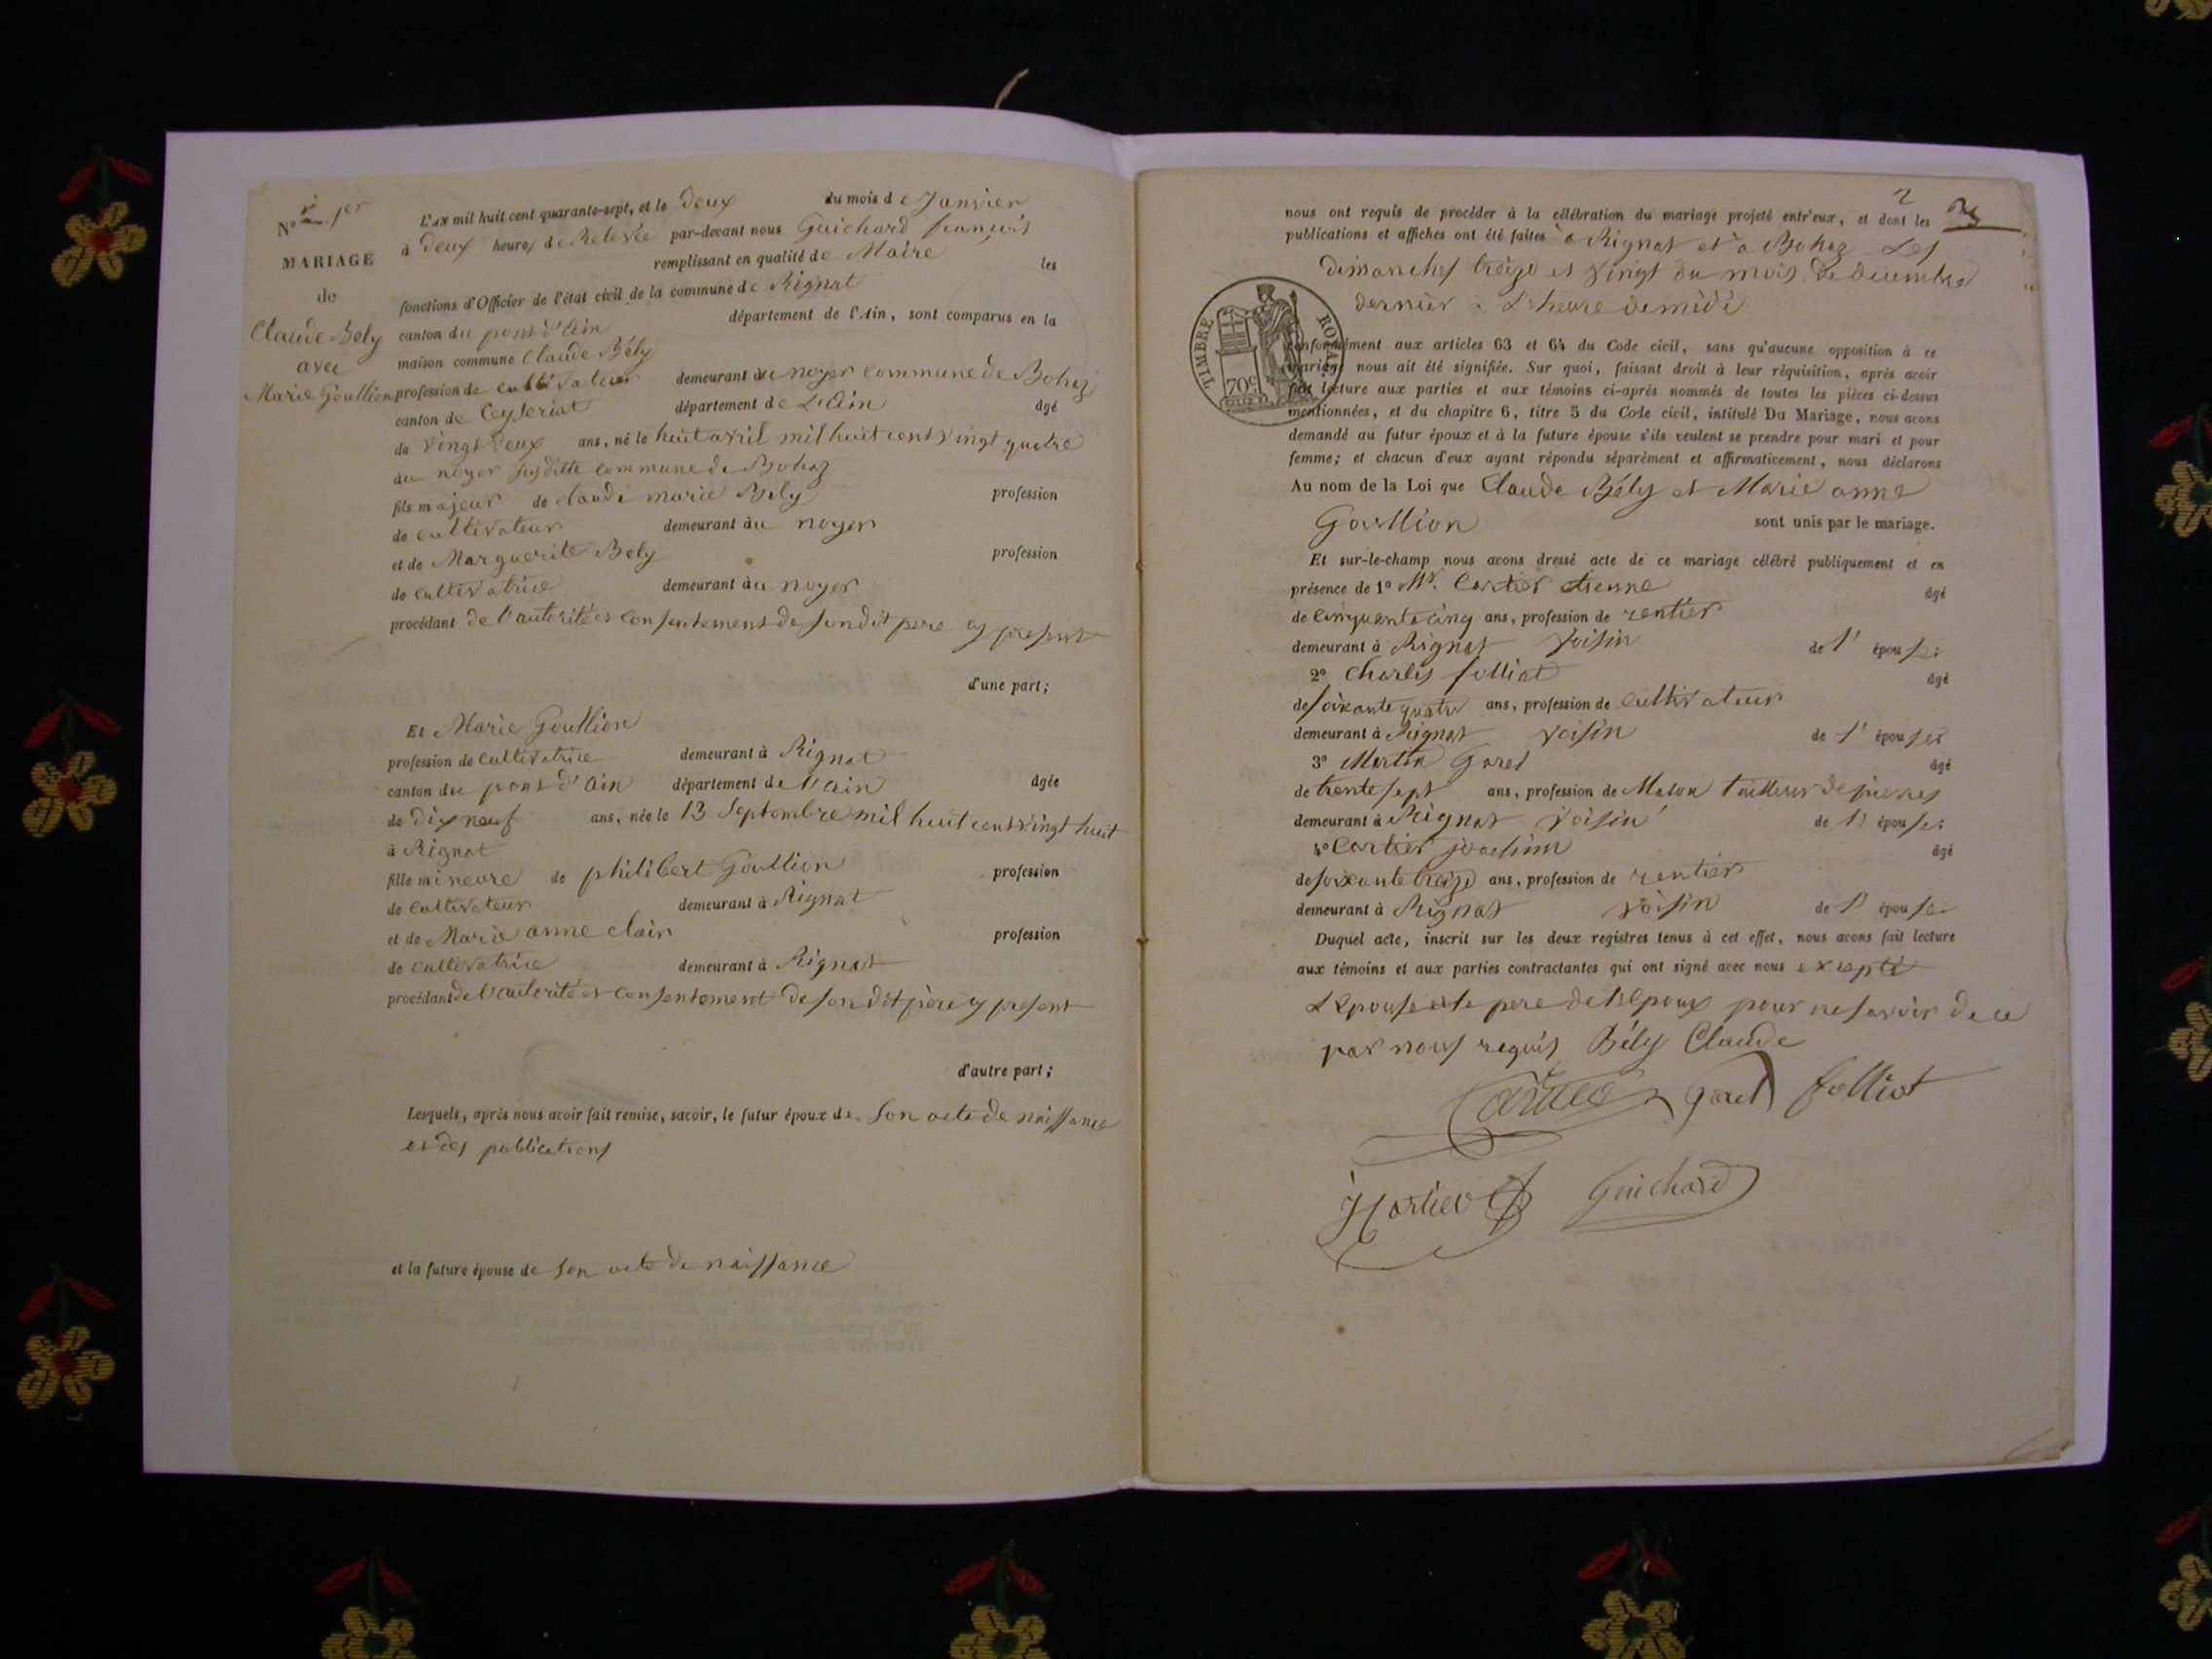 N° 1er
MARIAGE
de
Claude Bely
avec
Marie Goullion
L'AN mil huit cent quarante-sept, et le deux du mois de Janvier
à deux heures de Relevée par-devant nous Guichard françois
remplissant en qualité de Maire les
fonctions d'Officier de l'état civil de la commune de Rignat
canton du pont d'ain département de l'Ain, sont comparus en la
maison commune Claude Bély
profession de cultivateur demeurant au noyer commune de Bohaz
canton de Ceyseriat département de L'Ain âgé
de vingt deux ans, né le huit avril mil huit cent vingt quatre
au noyer susditte commune de Bohaz
fils majeur de claude marie Bely profession
de cultivateur demeurant au noyer
et de Marguerite Bely profession
de cultivatrice demeurant au noyer
procédant de l'autorité et consentement de son dit pere cy present
d'une part;
Et Marie Goullion
profession de cultivatrice demeurant à Rignat
canton du pont d'ain département de l'ain âgée
de dix neuf ans, née le 13 Septembre mil huit cent vingt huit
à Rignat
fille mineure de philibert Goullion profession
de cultivateur demeurant à Rignat
et de Marie anne clair profession
de cultivatrice demeurant à Rignat
procédant de l'autorité et consentement de son dit père cy present
d'autre part;
Lesquels, après nous avoir fait remise, savoir, le futur époux de son acte de naissance
et des publications
et la future épouse de son acte de naissance
2
nous ont requis de procéder à la célébration du mariage projeté entr'eux, et dont les
publications et affiches ont été faites à Rignat et à Bohaz Les
dimanches treize et vingt du mois de decembre
dernier à L'heure de midi
TIMBRE ROYAL
70c
conformément aux articles 63 et 64 du Code civil, sans qu'aucune opposition à ce
mariage nous ait été signifiée. Sur quoi, faisant droit à leur réquisition, après avoir
fait lecture aux parties et aux témoins ci-après nommés de toutes les pièces ci-dessus
mentionnées, et du chapitre 6, titre 5 du Code civil, intitulé Du Mariage, nous avons
demandé au futur époux et à la future épouse s'ils veulent se prendre pour mari et pour
femme; et chacun d'eux ayant répondu séparément et affirmativement, nous déclarons
Au nom de la Loi que Claude Bély et Marie anne
Goullion sont unis par le mariage.
Et sur-le-champ nous avons dressé acte de ce mariage célébré publiquement et en
présence de 1° Mr. Cartier etienne âgé
de cinquante cinq ans, profession de rentier
demeurant à Rignat voisin de l'épouse;
2° Charles folliat âgé
de soixante quatre ans, profession de cultivateur
demeurant à Rignat voisin de l'épouse;
3° Martin Garel âgé
de trente sept ans, profession de Mason tailleur de pierres
demeurant à Rignat voisin de l'épouse;
4° Cartier joachim âgé
de soixante treize ans, profession de rentier
demeurant à Rignat voisin de l'épouse.
Duquel acte, inscrit sur les deux registres tenus à cet effet, nous avons fait lecture
aux témoins et aux parties contractantes qui ont signé avec nous excepté
L'Epouse et le pere de l'Epoux pour ne savoir de ce
par nous requis Bély Claude
Cartier Garel folliat
J Cartier Guichard